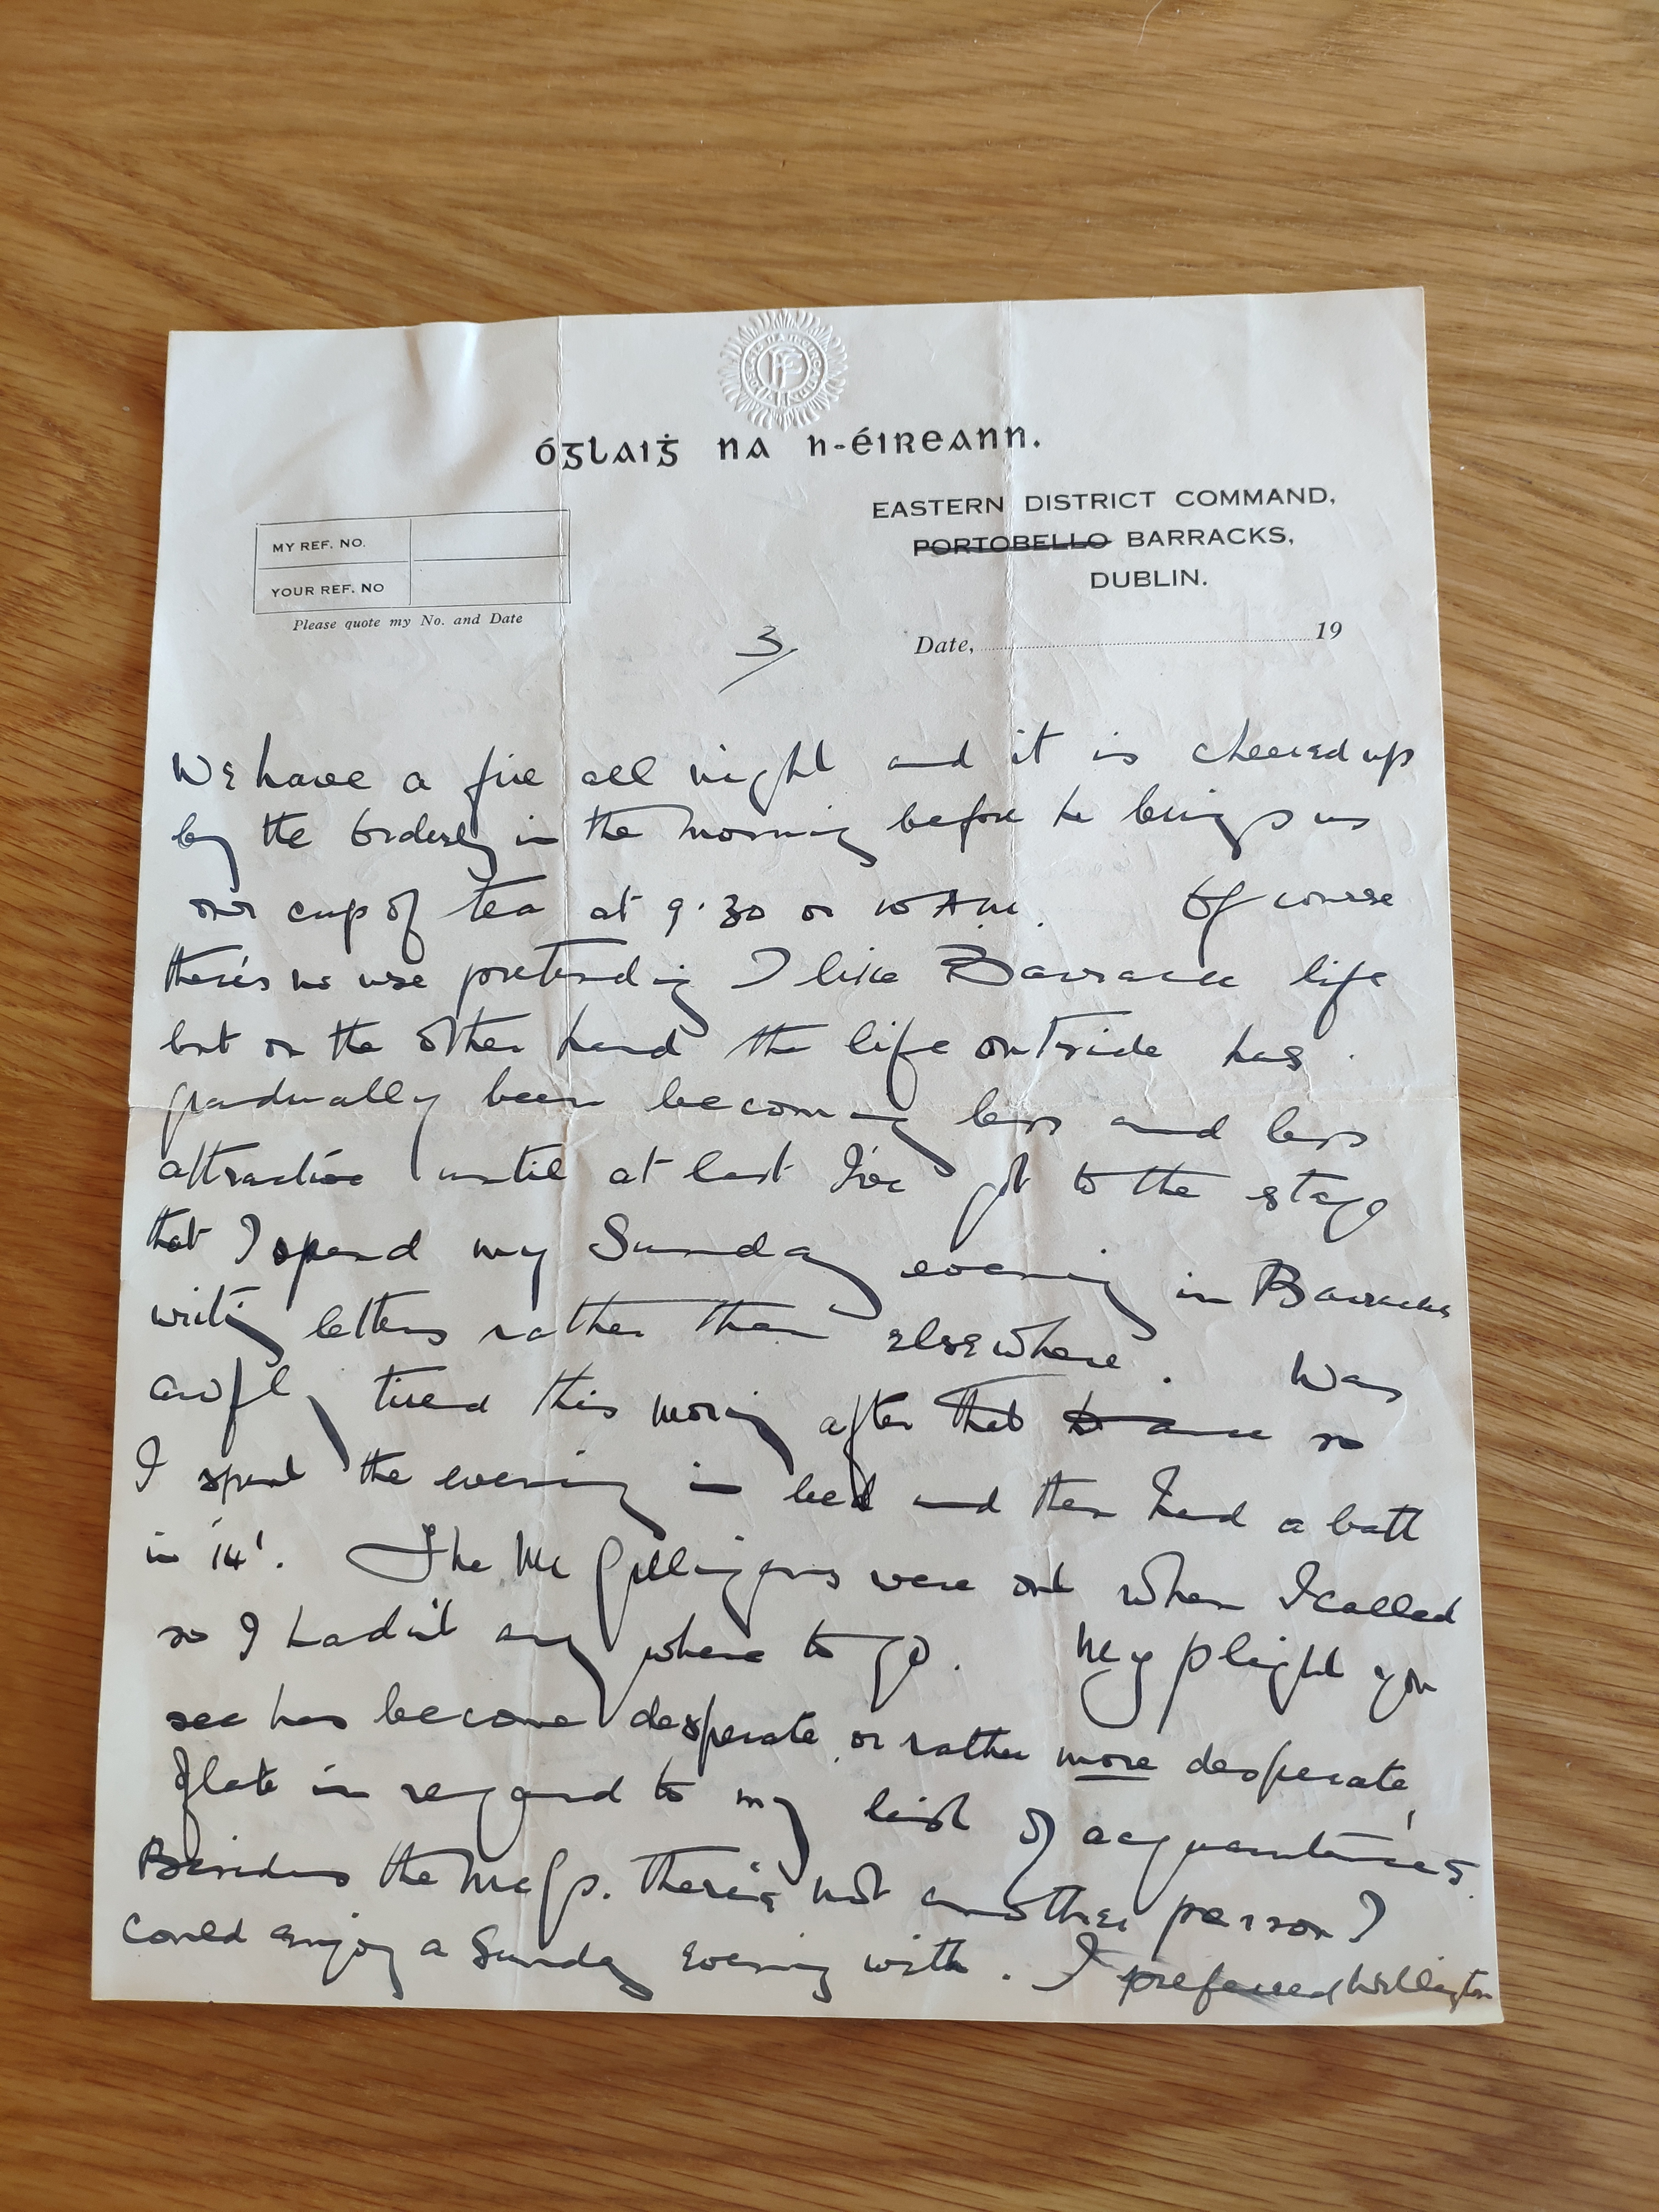 óglaiġ na h-éireann.
EASTERN DISTRICT COMMAND,
PORTOBELLO BARRACKS,
DUBLIN.
MY REF. NO.
YOUR REF. NO
Please quote my No. and Date
3/
Date, 19
We have a fire all night and it is cheered up
by the Orderly in the morning before he brings us
our cup of tea at 9.30 or 10 A.M. Of course
there's no use pretending I like Barrack life
but on the other hand the life outside has
gradually been becoming less and less
attractive until at last I've got to the stage
that I spend my Sunday evening in Barracks
writing letters rather than elsewhere. Was
awfully tired this morning after that dance so
I spent the evening in bed and then had a bath
in '14'. The Mc Gilligans were out when I called
so I hadn't any where to go. My plight you
see has become desperate, or rather more desperate,
of late in regard to my list of acquaintances.
Besides the McGs. there's not another person I
could enjoy a Sunday evening with. I preferred Wellington